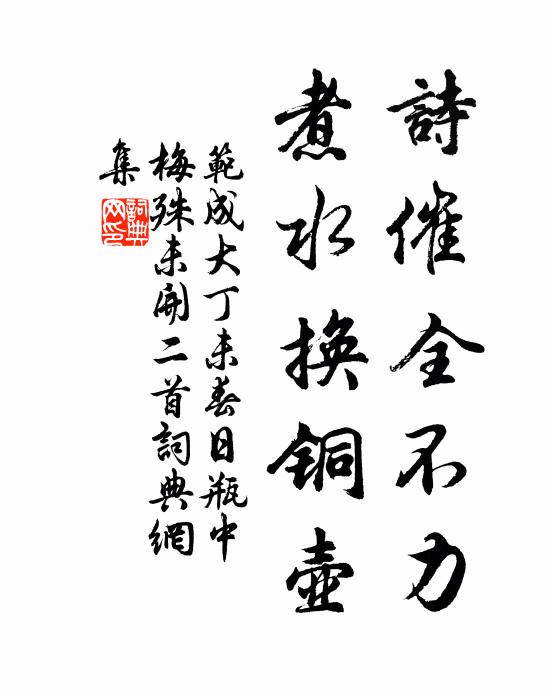 詩催全不力
煮水換铜壺
範成大丁未春日瓶中
梅殊未開二首詞典網
集
詞典
网印